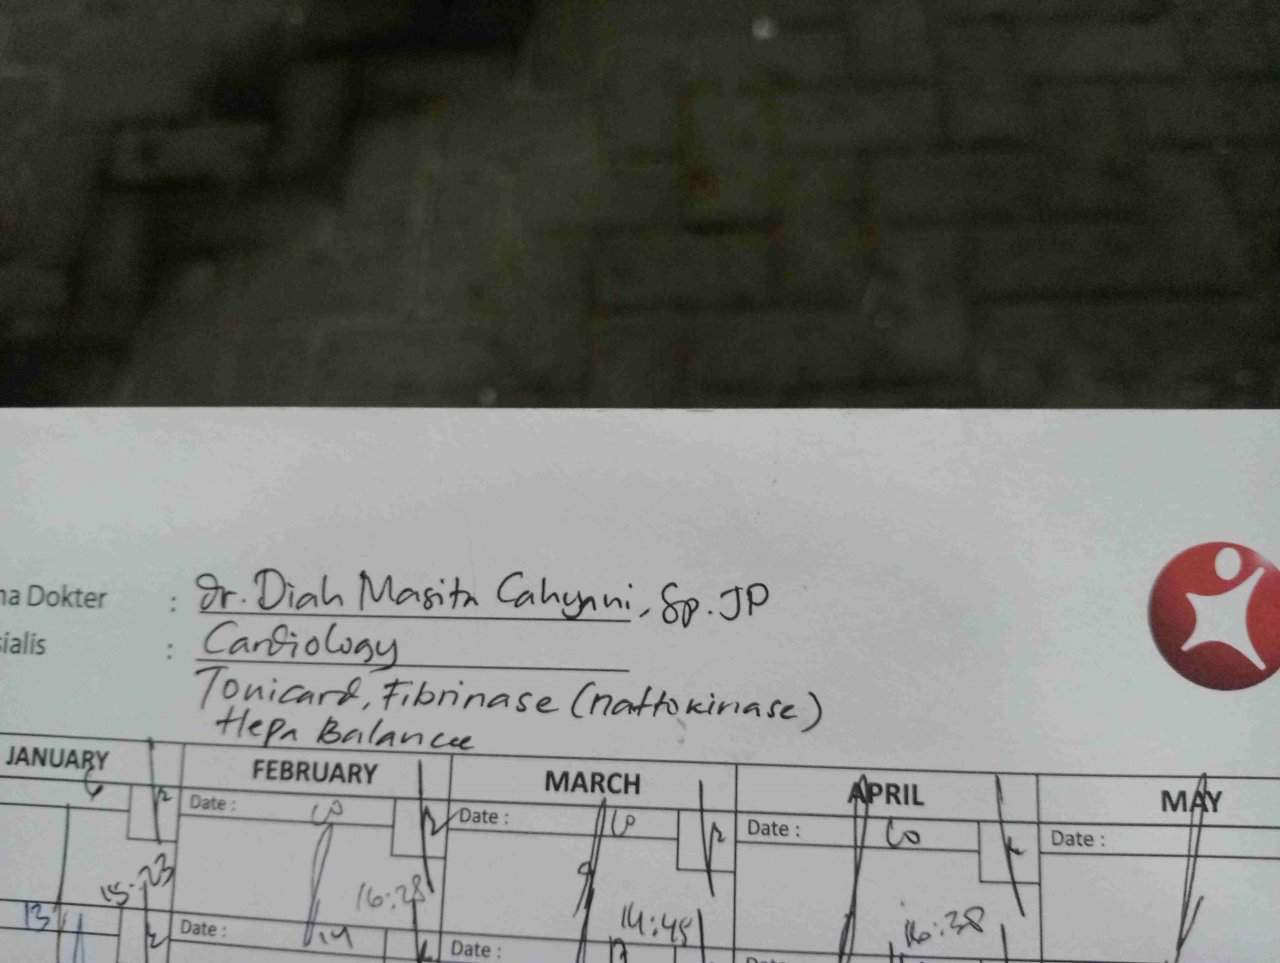 na Dokter : Dr. Diah Masita Cahyani, Sp.JP
sialis : Cardiology
Tonicard, Fibrinase (nattokinase)
Hepa Balance
JANUARY FEBRUARY MARCH APRIL MAY
Date : 10 Date : 10 Date : 10 Date :
15:23 16:28 14:45 16:38
13 Date : 14 Date : Date :